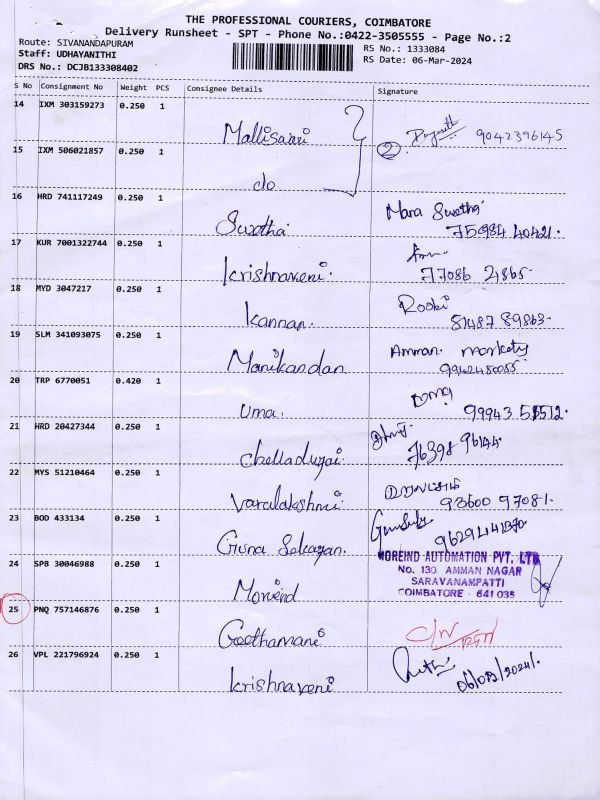 THE PROFESSIONAL COURIERS, COIMBATORE
Delivery Runsheet - SPT - Phone No.:0422-3505555 - Page No.:2
Route: SIVANANDAPURAM
RS No.: 1333084
Staff: UDHAYANITHI
RS Date: 06-Mar-2024
DRS No.: DCJB133308402
S No Consignment No Weight PCS Consignee Details Signature
14 IXM 303159273 0.250 1
9042396145
15 IXM 506021857 0.250 1 2
do
16 HRD 741117249 0.250 1 Swetha Mara Swetha
75984 40421.
17 KUR 7001322744 0.250 1 Krishnaveni.
77086 24865
18 MYD 3047217 0.250 1 Kannan. Roobi
81487 89863
19 SLM 341093075 0.250 1 Manikandan Amman
9942480055
20 TRP 6770051 0.420 1 Uma. உமா
99943 51512.
21 HRD 20427344 0.250 1 Chelladurai
76398 96144
22 MYS 51210464 0.250 1 Varalakshmi
93600 97081.
23 BOD 433134 0.250 1 Guna Sekaran.
24 SPB 30046988 0.250 1 Moreind
MOREIND AUTOMATION PVT. LTD
No. 130 AMMAN NAGAR
SARAVANAMPATTI
COIMBATORE - 641 035
25 PNQ 757146876 0.250 1 Geethamani
26 VPL 221796924 0.250 1 Krishnaveni
06/03/2024.